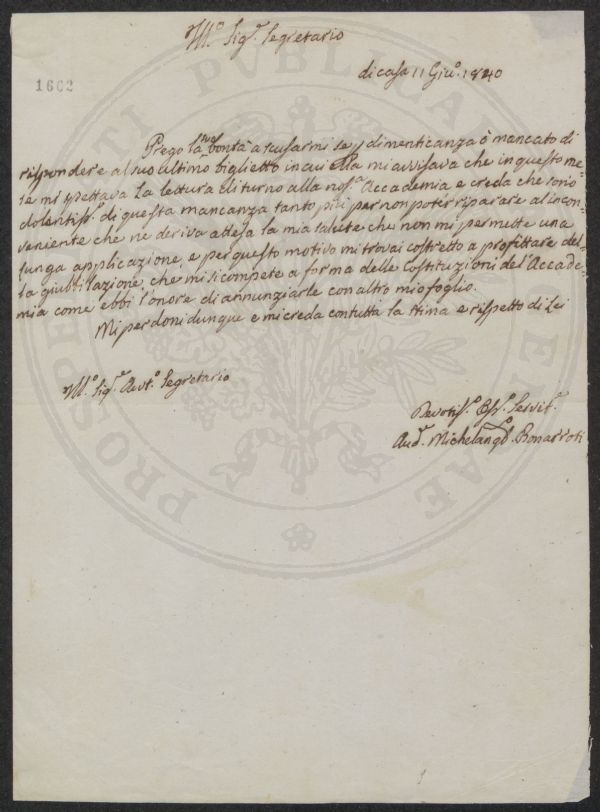 Ill.º Sig.ʳ Segretario
di casa 11 Giu.º 1840
1602
Prego la sua bontà a scusarmi se p dimenticanza ò mancato di
rispondere al suo ultimo biglietto in cui Ella mi avvisava che in questo me-
se mi spettava la lettura di turno alla nos.ª Accademia e creda che sono
dolentiss.º di questa mancanza tanto più per non poter riparare al incon-
veniente che ne deriva attesa la mia salute che non mi permette una
lunga applicazione, e per questo motivo mi trovai costretto a profittare del-
la giubilazione, che mi si compete a forma delle costituzioni del'Accade-
mia come ebbi l'onore di annunziarle con altro mio foglio.
Mi perdoni dunque e mi creda con tutta la stima e rispetto di Lei
Ill.º Sig.ʳ Avv.º Segretario
Devotiss.º Obb.º Servit.ᵉ
Aud.ʳ Michelang.º Bonarroti
PROSPERITATI PUBLICAE AUGENDAE